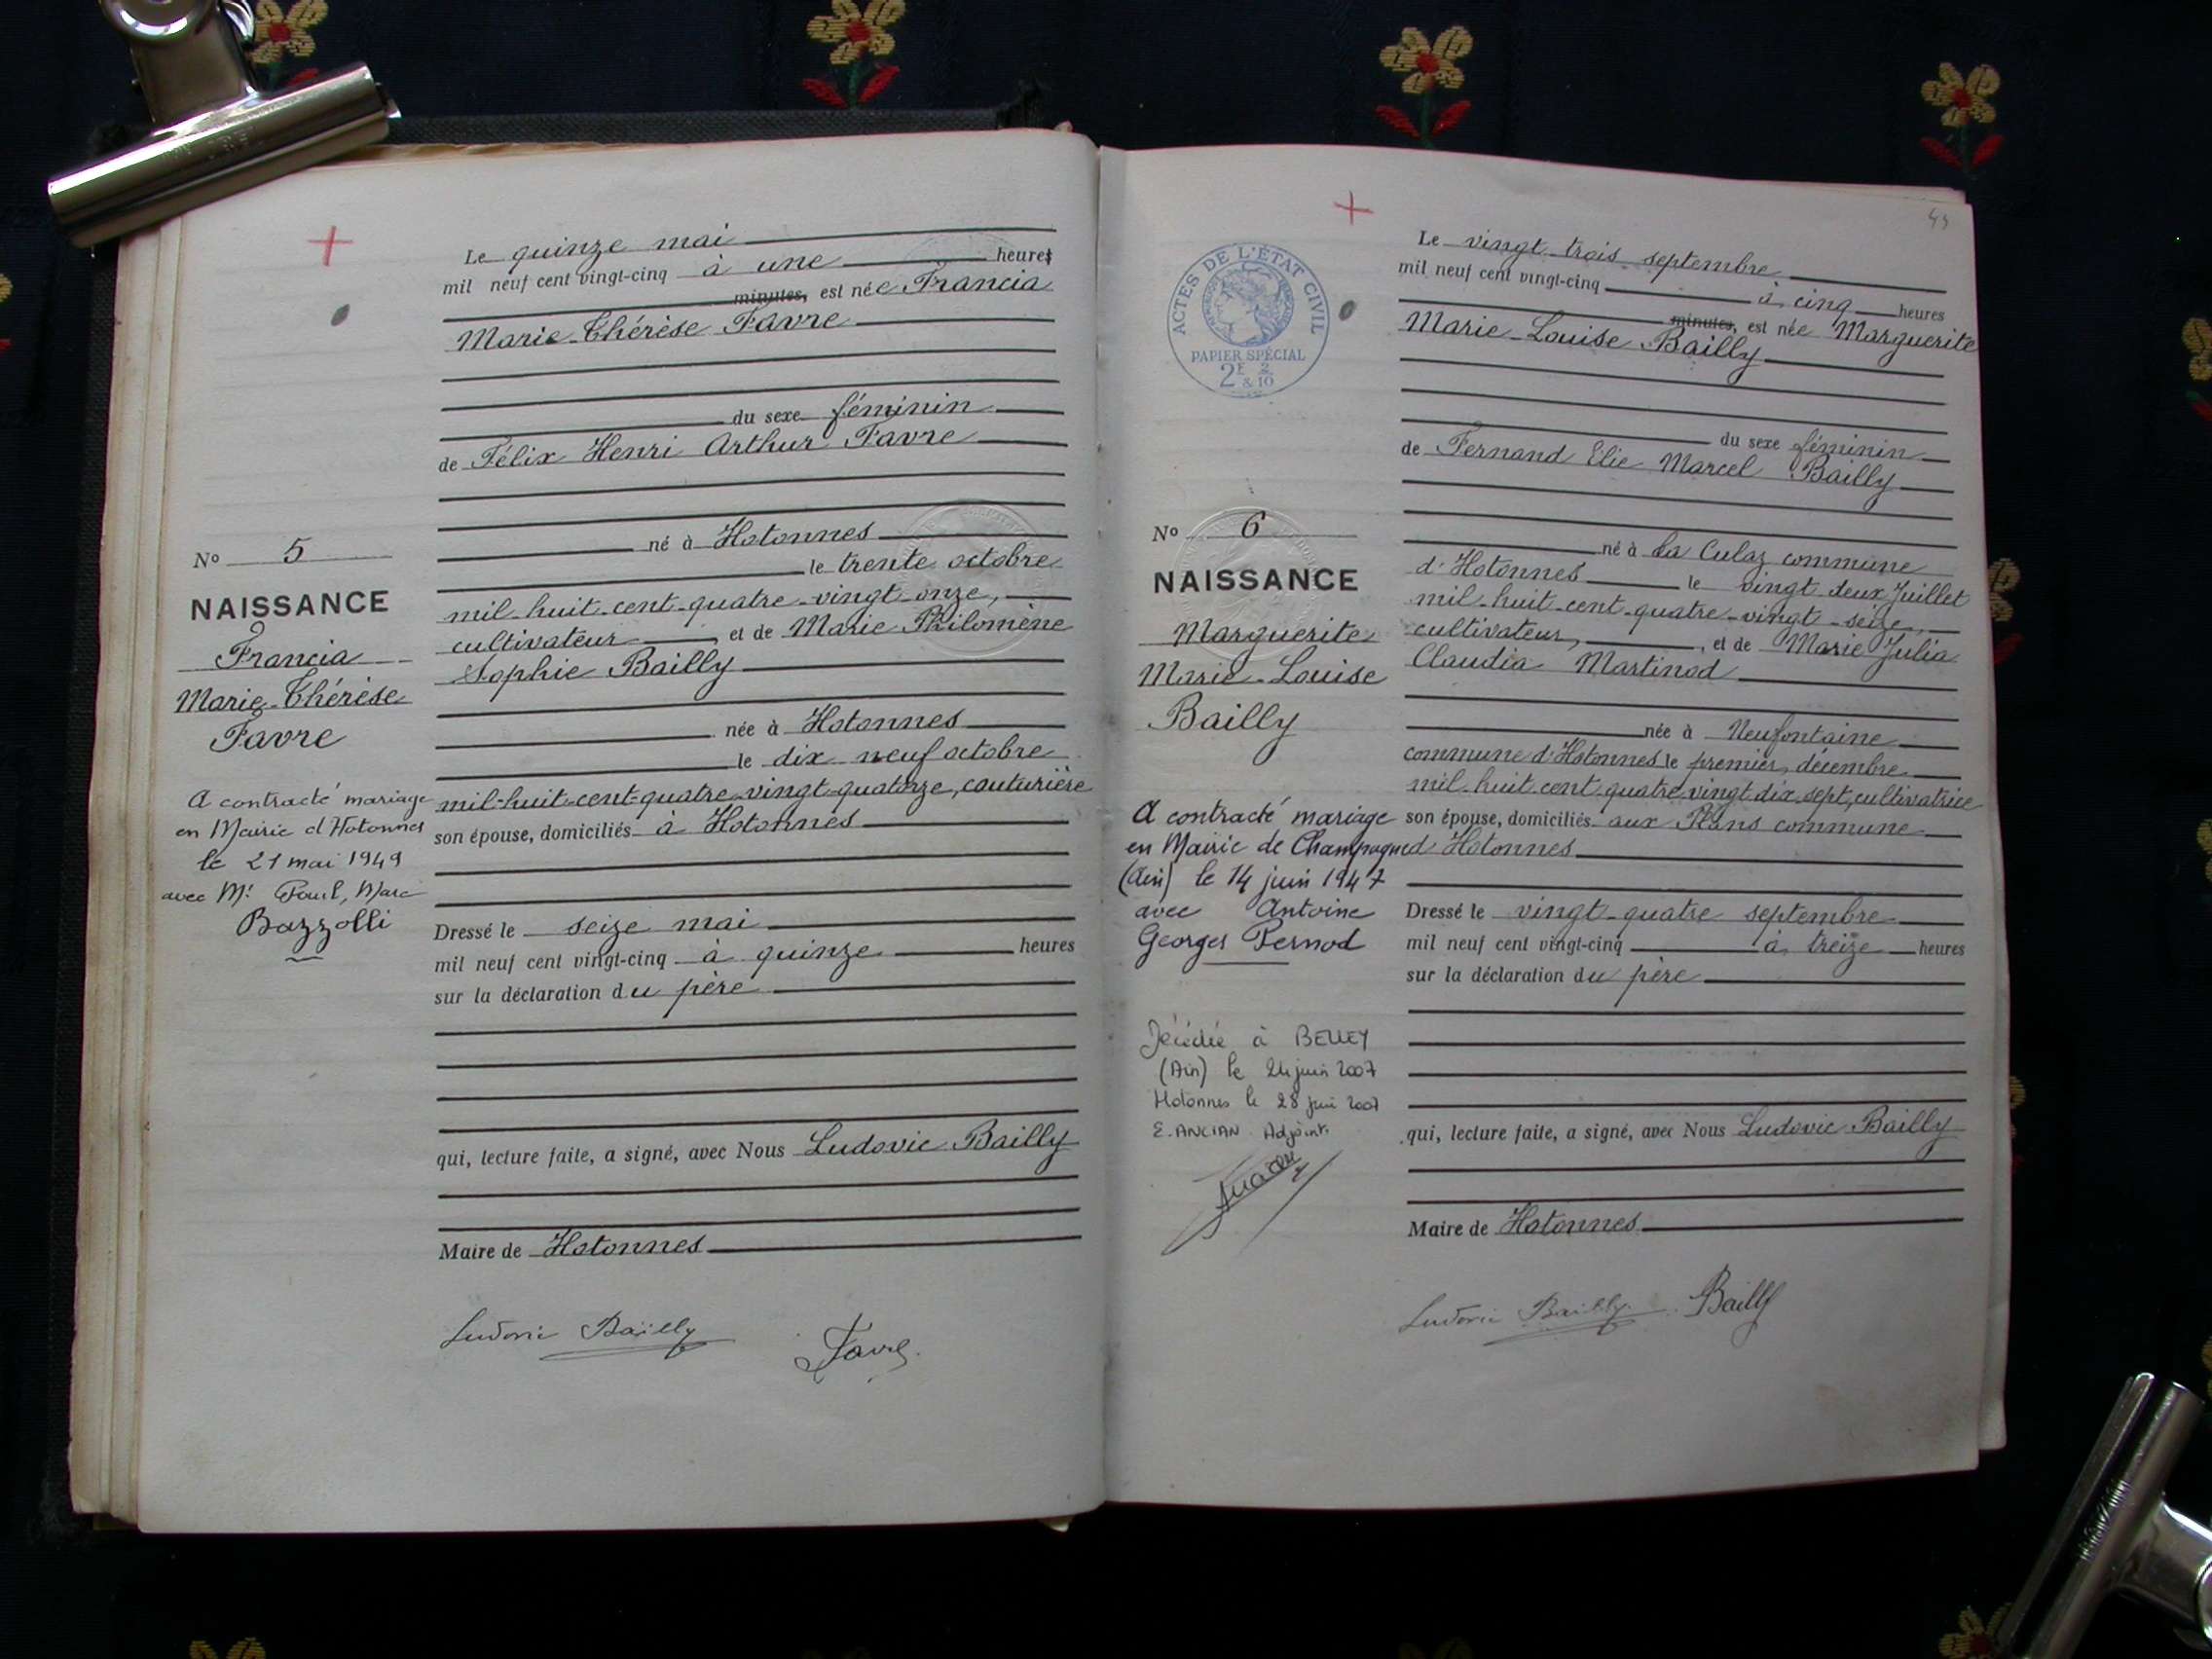 Le quinze mai
mil neuf cent vingt-cinq à une heures
minutes, est née Francia
Marie-Thérèse Favre
du sexe féminin
de Félix Henri Arthur Favre
né à Hotonnes
le trente octobre
mil-huit-cent-quatre-vingt-onze,
cultivateur, et de Marie Philomène
Sophie Bailly
née à Hotonnes
le dix-neuf octobre
mil-huit-cent-quatre-vingt-quatorze, couturière
son épouse, domiciliés à Hotonnes
Dressé le seize mai
mil neuf cent vingt-cinq à quinze heures
sur la déclaration du père
qui, lecture faite, a signé, avec Nous Ludovic Bailly
Maire de Hotonnes
Ludovic Bailly
Favre
N° 5
NAISSANCE
Francia
Marie-Thérèse
Favre
A contracté mariage
en Mairie d'Hotonnes
le 21 mai 1949
avec Mr Paul, Marc
Bazzolli
ACTES DE L'ÉTAT CIVIL
PAPIER SPÉCIAL
2F 2
& 10
Le vingt-trois septembre
mil neuf cent vingt-cinq à cinq heures
minutes, est née Marguerite
Marie-Louise Bailly
du sexe féminin
de Fernand Elie Marcel Bailly
né à La Culaz commune
d'Hotonnes le vingt deux Juillet
mil-huit-cent-quatre-vingt-seize,
cultivateur, et de Marie Julia
Claudia Martinod
née à Neufontaine
commune d'Hotonnes le premier décembre
mil-huit-cent-quatre-vingt-dix-sept, cultivatrice
son épouse, domiciliés aux Plans commune
d'Hotonnes
Dressé le vingt-quatre septembre
mil neuf cent vingt-cinq à treize heures
sur la déclaration du père
qui, lecture faite, a signé, avec Nous Ludovic Bailly
Maire de Hotonnes
Ludovic Bailly
Bailly
N° 6
NAISSANCE
Marguerite
Marie-Louise
Bailly
A contracté mariage
en Mairie de Champagne
(Ain) le 14 juin 1947
avec Antoine
Georges Pernod
Décédée à BELLEY
(Ain) le 24 juin 2007
Hotonnes le 28 juin 2007
E. ANCIAN Adjoint